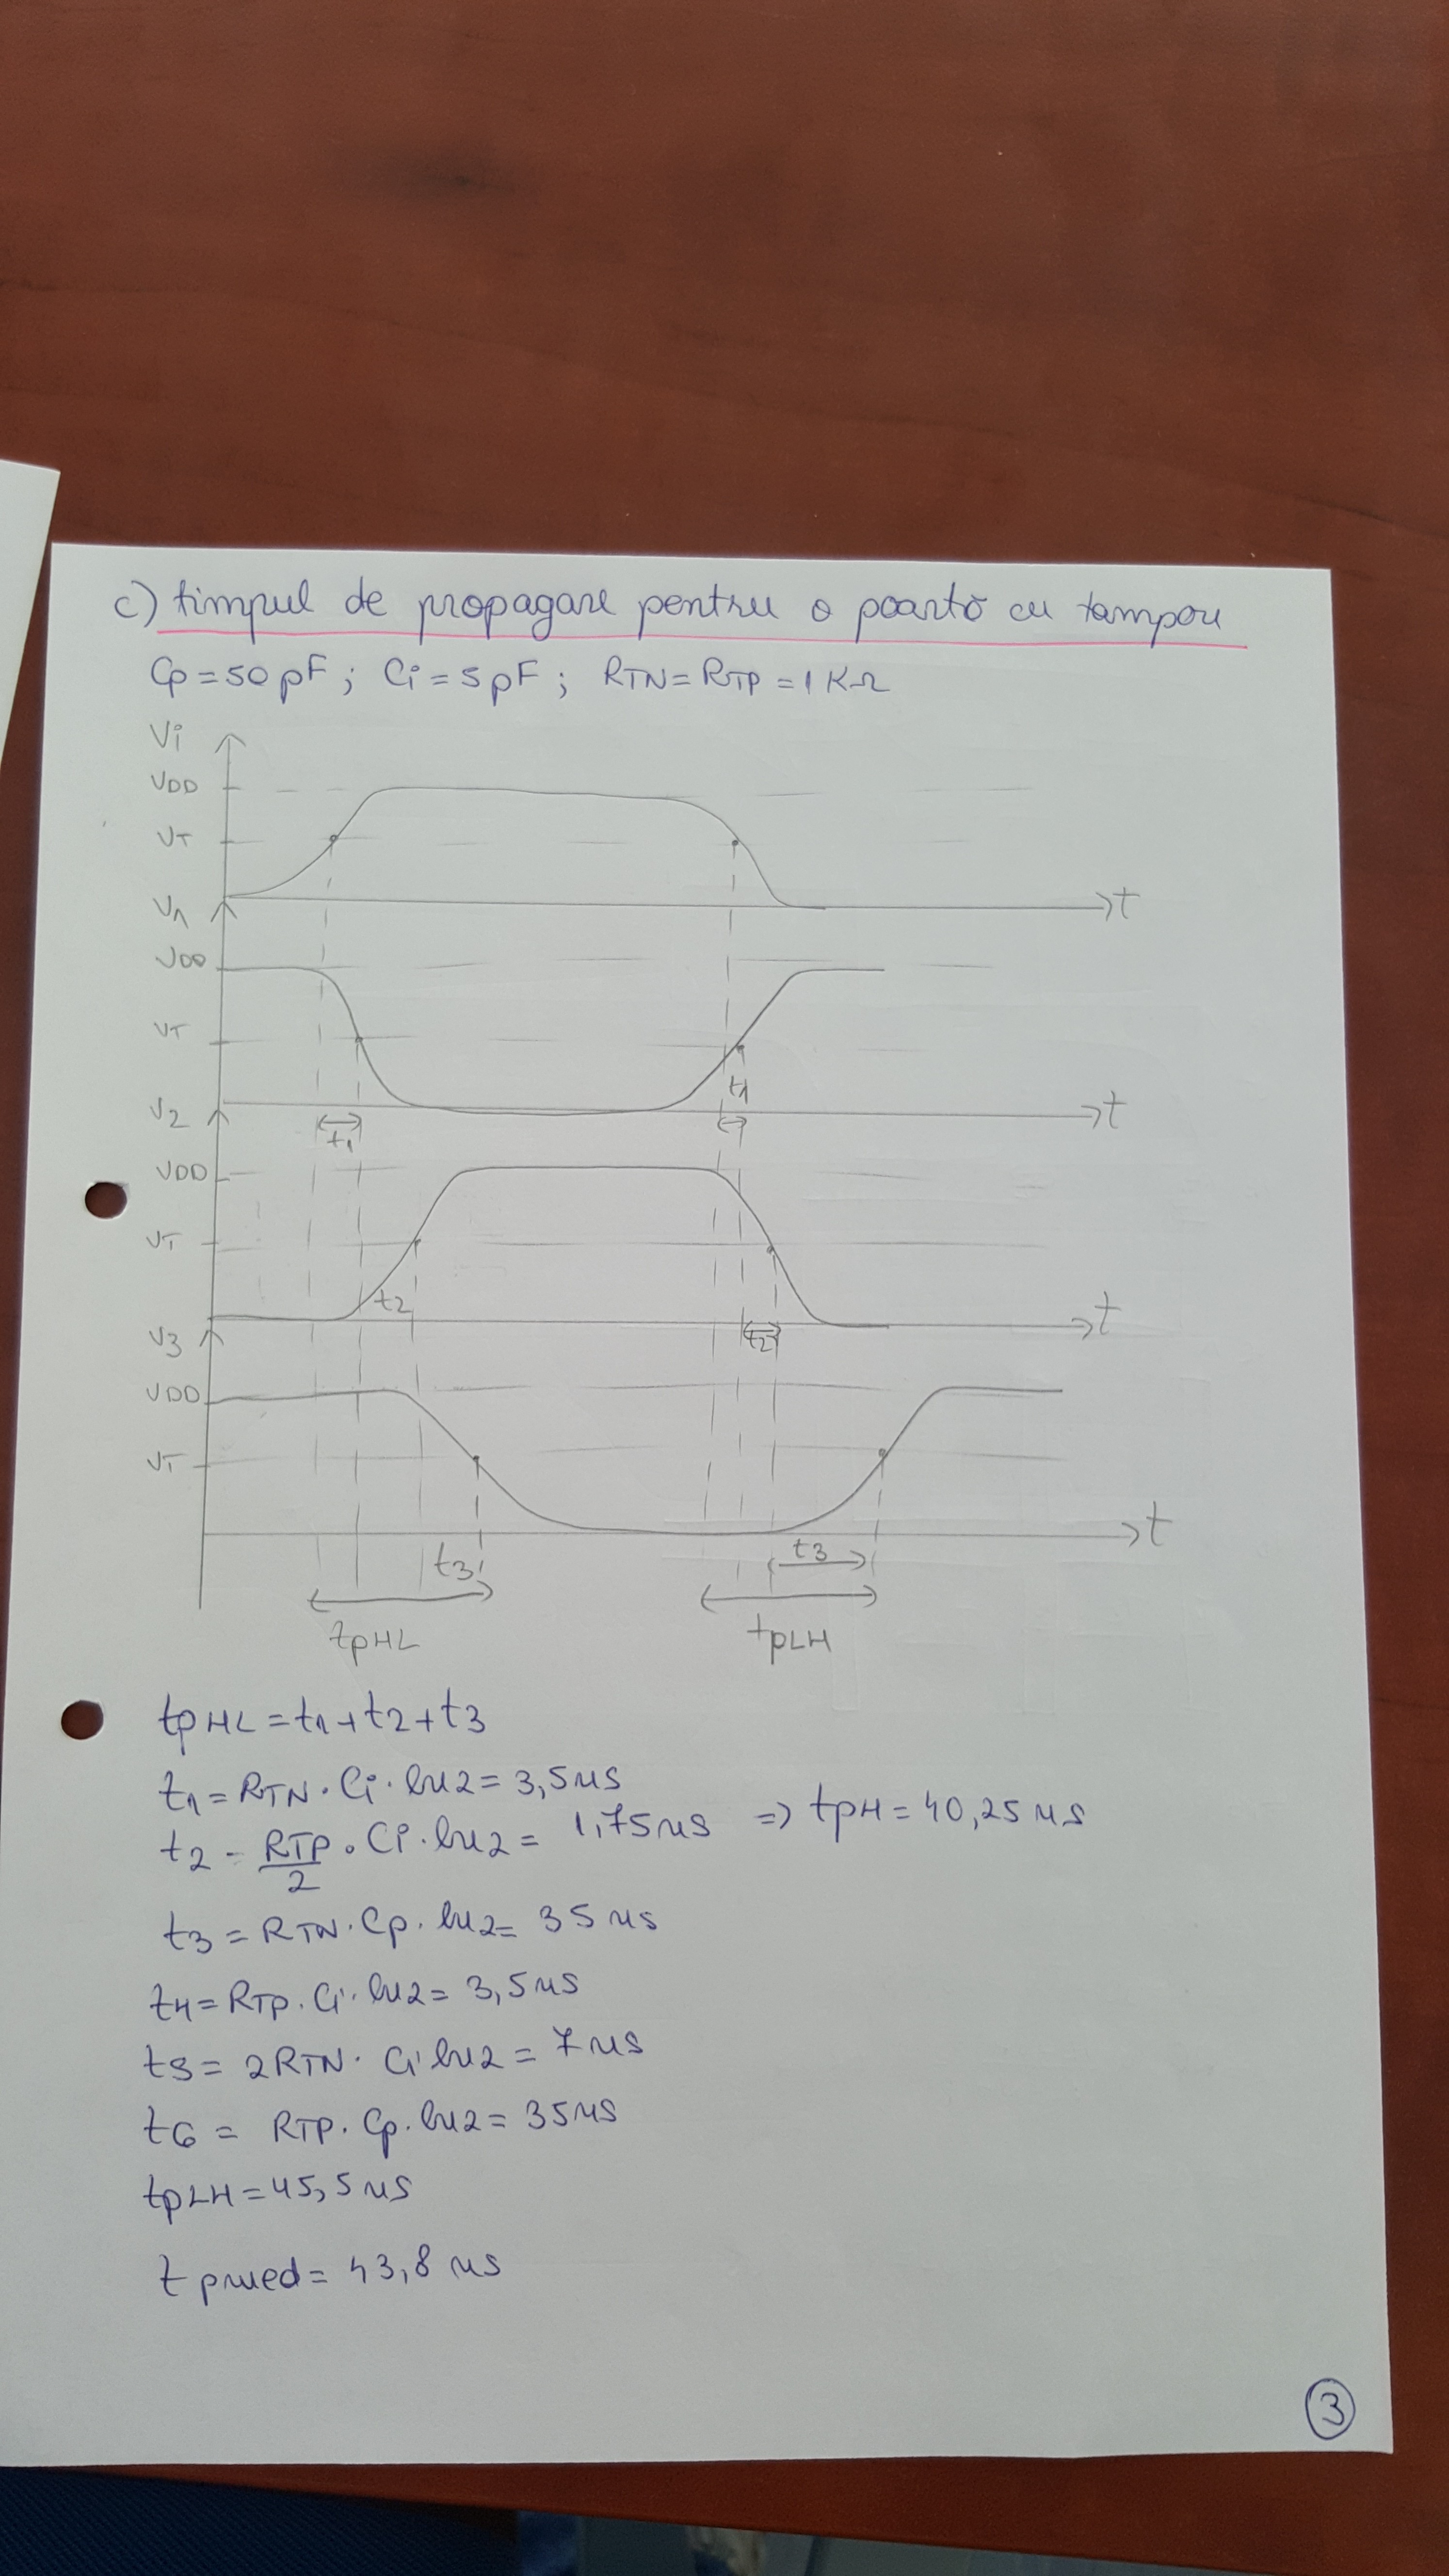 c) timpul de propagare pentru o poartă cu tampon
Cp = 50 pF ; Ci = 5 pF ; RTN = RTP = 1 KΩ
Vi
VDD
VT
t
V1
VDD
VT
t1
t
t1
V2
VDD
VT
t2
t
t2
V3
VDD
VT
t
t3
t3
tpHL
tpLH
tpHL = t1 + t2 + t3
t1 = RTN · Ci · ln2 = 3,5 ns
t2 = RTP/2 · Ci · ln2 = 1,75 ns => tpH = 40,25 ns
t3 = RTN · Cp · ln2 = 35 ns
t4 = RTP · Ci · ln2 = 3,5 ns
t5 = 2RTN · Ci ln2 = 7 ns
t6 = RTP · Cp · ln2 = 35 ns
tpLH = 45,5 ns
tpmed = 43,8 ns
3